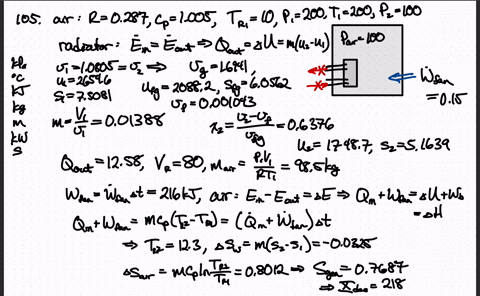 105. air: R=0.287, Cp=1.005, T_R1=10, P1=200, T1=200, P2=100
Par=100
radiator: Ėin=Ėout ⇒ Qout=ΔU=m(u2-u1)
kPa
°C
kJ
kg
m
kW
s
v1=1.0805=v2 ⇒ vg=1.6941,
u1=2654.6 ufg=2088.2, sfg=6.0562
s1=7.5081 vf=0.001043
Ẇfan=0.15
m=V1/v1=0.01388 x2=(v2-vf)/vfg=0.6376
u2=1748.7, s2=5.1639
Qout=12.58, VR=80, mair=P1V1/RT1=98.5kg
Wfan=Ẇfan Δt=216kJ, air: Ein-Eout=ΔE ⇒ Qin+Wfan=ΔU+Wb
=ΔH
Qin+Wfan=mCp(TR2-TR1)=(Q̇in+Ẇfan)Δt
⇒ TR2=12.3, ΔSw=m(s2-s1)=-0.0325
ΔSair=mCp ln TR2/TR1=0.8012 ⇒ Sgen=0.7687
⇒ Xdes=218